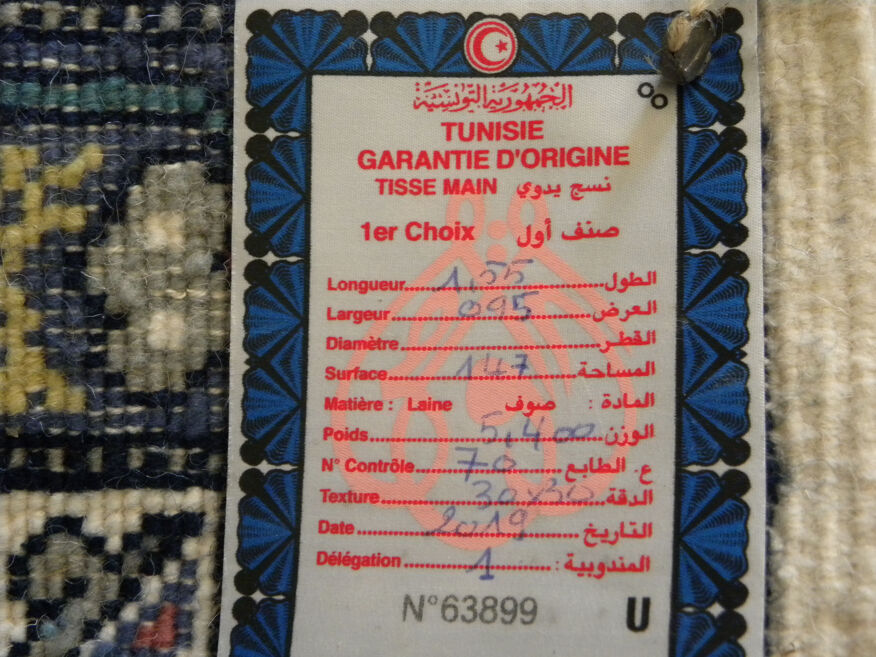 الجمهورية التونسية
TUNISIE
GARANTIE D'ORIGINE
TISSE MAIN نسج يدوي
1er Choix صنف أول
Longueur 1,55 الطول
Largeur 095 العرض
Diamètre القطر
Surface 147 المساحة
Matière : Laine صوف المادة :
Poids 5,400 الوزن
N° Contrôle 70 ع. الطابع
Texture 30x30 الدقة
Date 2019 التاريخ
Délégation 1 المندوبية :
N°63899 U